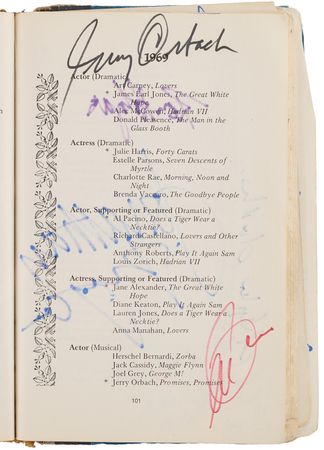 Jerry Orbach
1969
Actor (Dramatic)
Art Carney, Lovers
* James Earl Jones, The Great White
Hope
Alec McCowen, Hadrian VII
Donald Pleasence, The Man in the
Glass Booth
Actress (Dramatic)
* Julie Harris, Forty Carats
Estelle Parsons, Seven Descents of
Myrtle
Charlotte Rae, Morning, Noon and
Night
Brenda Vaccaro, The Goodbye People
Actor, Supporting or Featured (Dramatic)
* Al Pacino, Does a Tiger Wear a
Necktie?
Richard Castellano, Lovers and Other
Strangers
Anthony Roberts, Play It Again Sam
Louis Zorich, Hadrian VII
Actress, Supporting or Featured (Dramatic)
* Jane Alexander, The Great White
Hope
Diane Keaton, Play It Again Sam
Lauren Jones, Does a Tiger Wear a
Necktie?
Anna Manahan, Lovers
Actor (Musical)
Herschel Bernardi, Zorba
Jack Cassidy, Maggie Flynn
Joel Grey, George M!
* Jerry Orbach, Promises, Promises
101